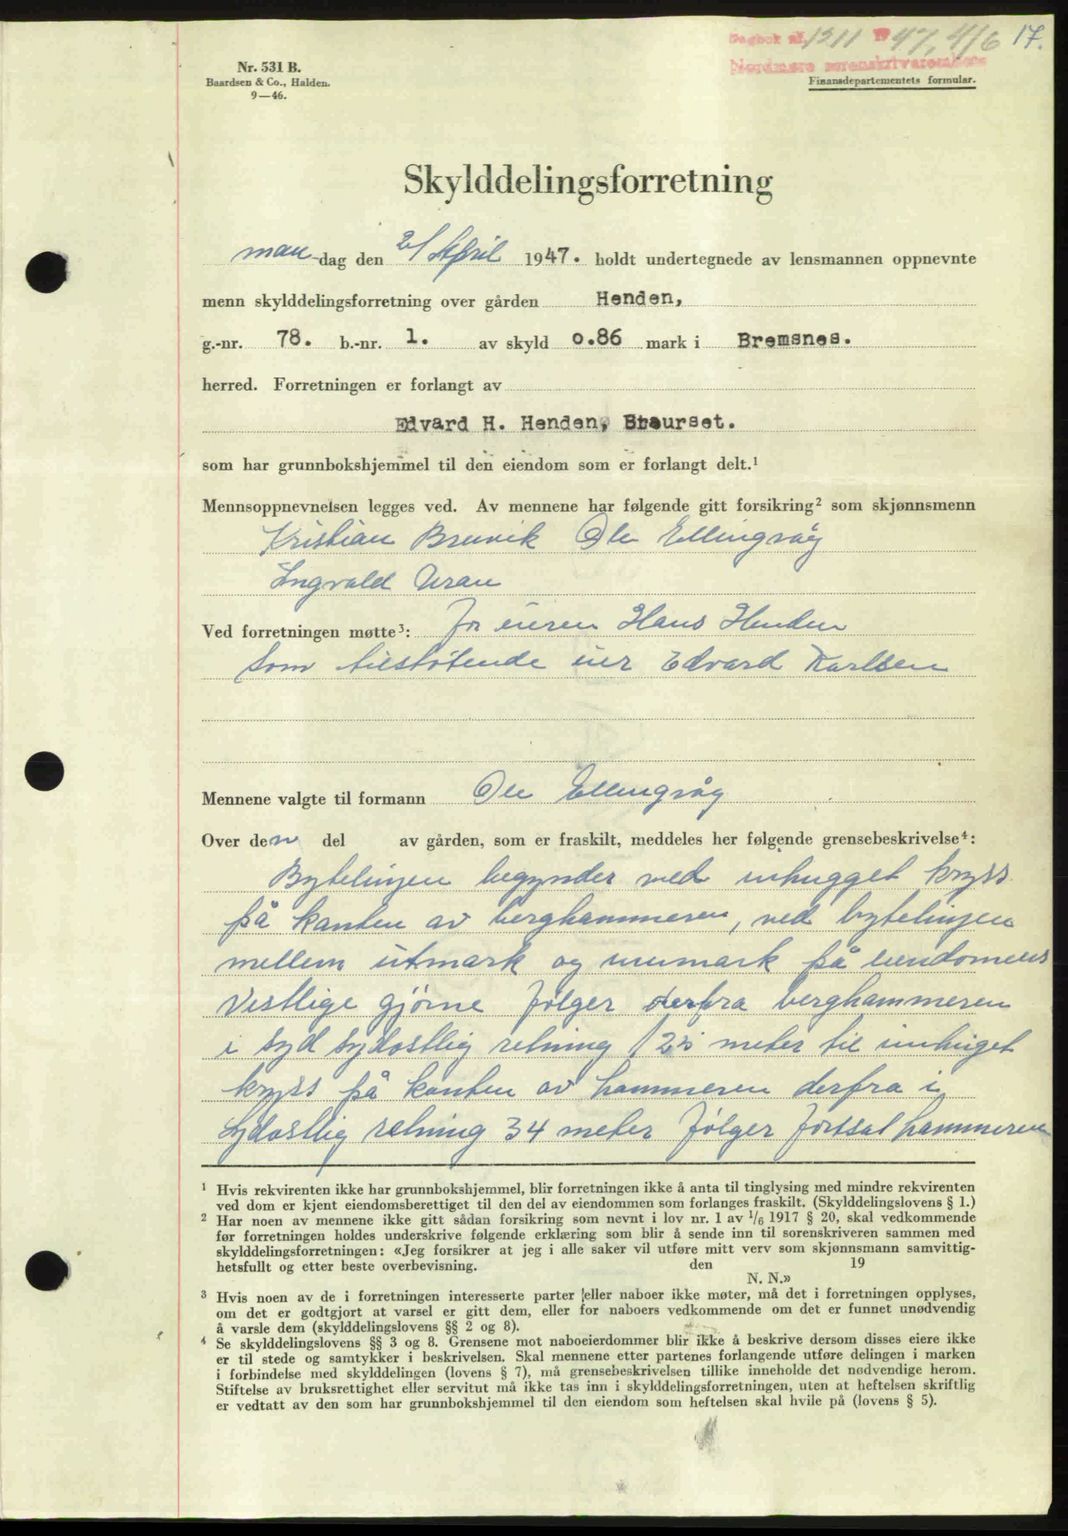 Dagbok nr. 1211 1947, 4/6 17.
Nordmøre sorenskriverembete
Nr. 531 B.
Baardsen & Co., Halden.
9—46.
Finansdepartementets formular.
Skylddelingsforretning
man-dag den 21 April 1947. holdt undertegnede av lensmannen oppnevnte
menn skylddelingsforretning over gården Henden,
g.-nr. 78. b.-nr. 1. av skyld 0.86 mark i Bremsnes.
herred. Forretningen er forlangt av
Edvard H. Henden, Staurset.
som har grunnbokshjemmel til den eiendom som er forlangt delt.¹
Mennsoppnevnelsen legges ved. Av mennene har følgende gitt forsikring² som skjønnsmenn
Kristian Bruvik Ole Ellingvåg
Ingvald Uran
Ved forretningen møtte³: for eieren Hans Henden
Som tilstøtende eier Edvard Karlsen
Mennene valgte til formann Ole Ellingvåg
Over den del av gården, som er fraskilt, meddeles her følgende grensebeskrivelse⁴:
Bytelinjen begynder ved inhugget kryss
på kanten av berghammeren, ved bytelinjen
mellem utmark og innmark på eiendomens
Vestlige gjörne følger derfra berghammeren
i syd sydostlig retning 12 meter til inhuget
kryss på kanten av hammeren derfra i
sydostlig retning 34 meter følger fortsat hammeren
¹ Hvis rekvirenten ikke har grunnbokshjemmel, blir forretningen ikke å anta til tinglysing med mindre rekvirenten
ved dom er kjent eiendomsberettiget til den del av eiendommen som forlanges fraskilt. (Skylddelingslovens § 1.)
² Har noen av mennene ikke gitt sådan forsikring som nevnt i lov nr. 1 av ¹/₆ 1917 § 20, skal vedkommende
før forretningen holdes underskrive følgende erklæring som blir å sende inn til sorenskriveren sammen med
skylddelingsforretningen: «Jeg forsikrer at jeg i alle saker vil utføre mitt verv som skjønnsmann samvittig-
hetsfullt og etter beste overbevisning. den 19
N. N.»
³ Hvis noen av de i forretningen interesserte parter eller naboer ikke møter, må det i forretningen opplyses,
om det er godtgjort at varsel er gitt dem, eller for naboers vedkommende om det er funnet unødvendig
å varsle dem (skylddelingslovens §§ 2 og 8).
⁴ Se skylddelingslovens §§ 3 og 8. Grensene mot naboeierdommer blir ikke å beskrive dersom disses eiere ikke
er til stede og samtykker i beskrivelsen. Skal mennene etter partenes forlangende utføre delingen i marken
i forbindelse med skylddelingen (lovens § 7), må grensebeskrivelsen tillike inneholde det nødvendige herom.
Stiftelse av bruksrettighet eller servitut må ikke tas inn i skylddelingsforretningen, uten at heftelsen skriftlig
er vedtatt av den som har grunnbokshjemmel til den eiendom som heftelsen skal hvile på (lovens § 5).